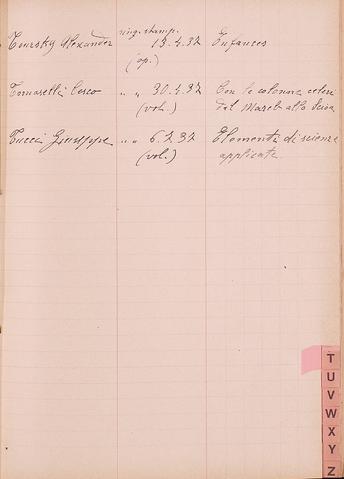 ring. stamp.
Toursky Alexander 13.4.37 Enfances
(op.)
Tomaselli Cesco " " 30.4.37 Con le colonne celeri
(vol.) dal Mareb allo Scioa
Tucci Giuseppe " " 6.7.37 Elementi di scienze
(vol.) applicate
T
U
V
W
X
Y
Z